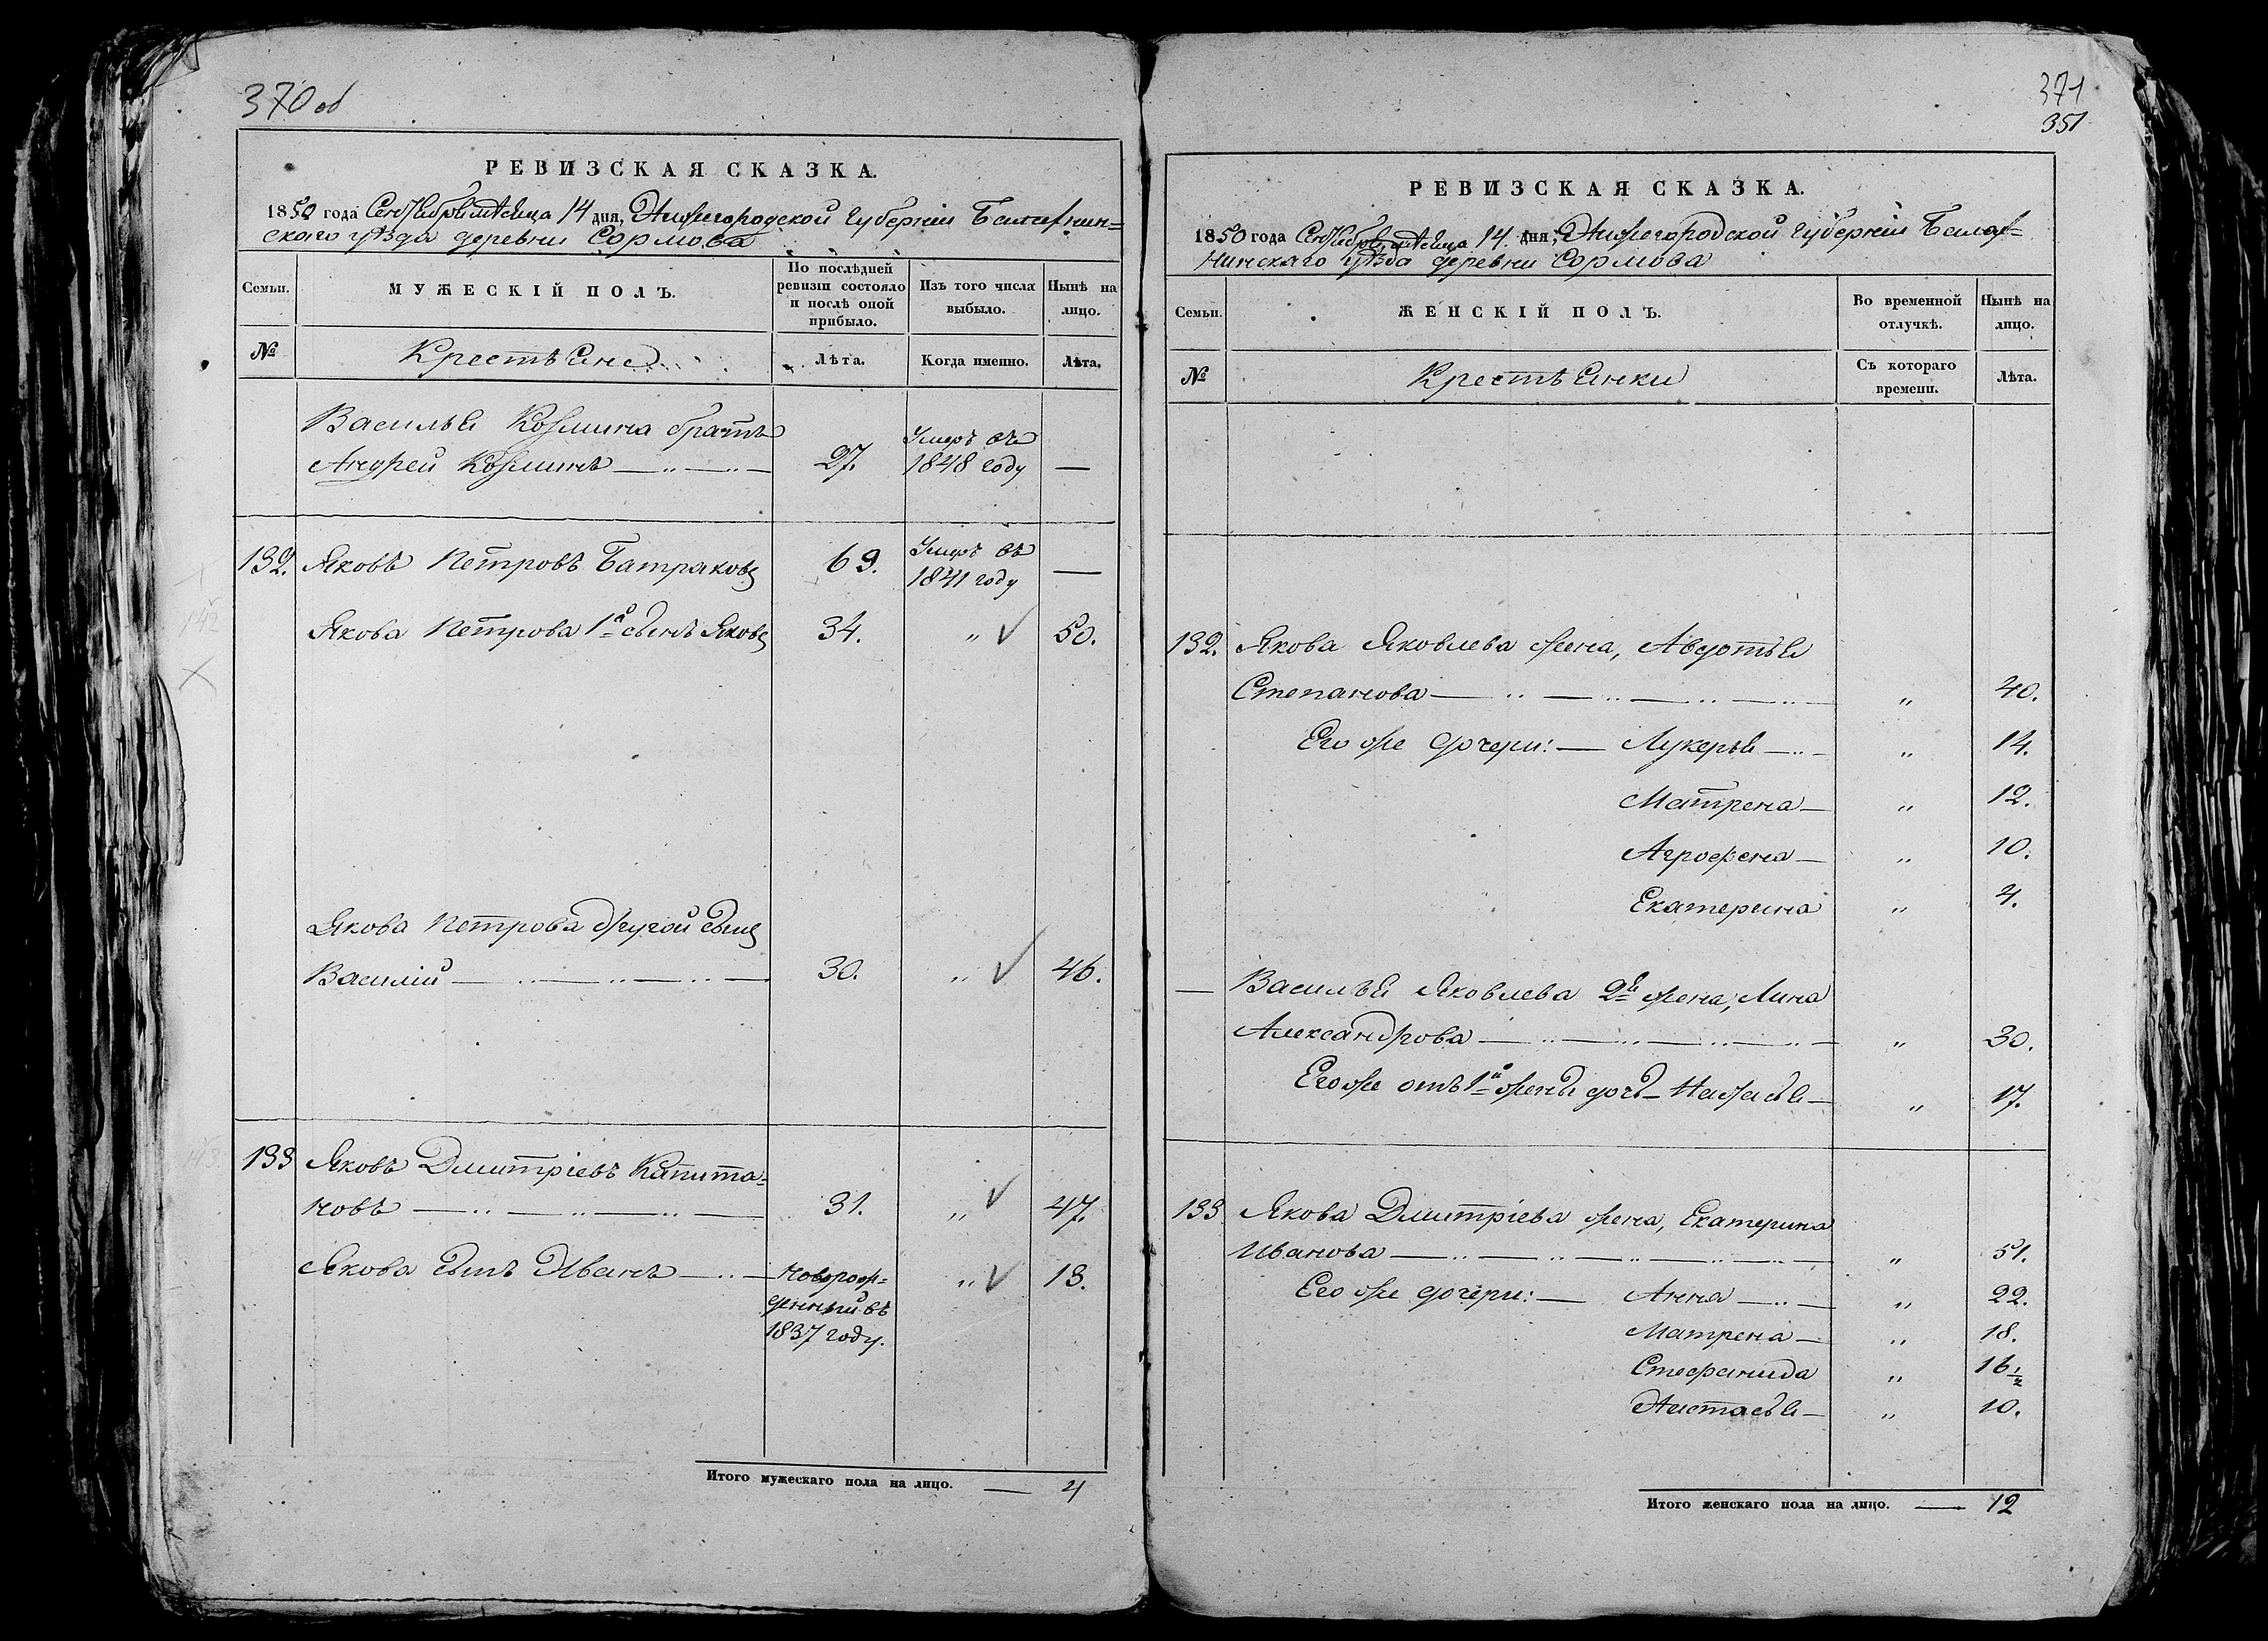 370 об
РЕВИЗСКАЯ СКАЗКА.
1850 года Сентября мѣсяца 14 дня, Нижегородской Губерніи Балахнин=
скаго уѣзда деревни Сормова
Семьи.
МУЖЕСКІЙ ПОЛЪ.
По послѣдней ревизіи состояло и послѣ оной прибыло.
Изъ того числа выбыло.
Нынѣ на лицо.
№
Крестьяне
Лѣта.
Когда именно.
Лѣта.
Василья Козмина братъ
Андрей Козминъ 27. Умеръ въ 1848 году —
132. Яковъ Петровъ Батраковъ 69. Умеръ въ 1841 году —
Якова Петрова 1й сынъ Яковъ 34. „ 50.
Якова Петрова другой сынъ
Василій 30. „ 46.
133 Яковъ Дмитріевъ Капита=
новъ 31. „ 47.
Якова сынъ Иванъ новорож= „ 13.
денный въ
1837 году.
Итого мужескаго пола на лицо. — 4
371
351
РЕВИЗСКАЯ СКАЗКА.
1850 года Сентября мѣсяца 14. дня, Нижегородской Губерніи Балах=
нинскаго уѣзда деревни Сормова
Семьи.
ЖЕНСКІЙ ПОЛЪ.
Во временной отлучкѣ.
Нынѣ на лицо.
№
Крестьянки
Съ котораго времени.
Лѣта.
132. Якова Яковлева жена, Авдотья
Степанова „ 40.
Его же дочери: — Лукерья „ 14.
Матрена „ 12.
Агрофена „ 10.
Екатерина „ 4.
— Василья Яковлева 2я жена, Анна
Александрова „ 30.
Его же отъ 1й жены дочь — Наталья „ 17.
133 Якова Дмитріева жена, Екатерина
Иванова „ 51.
Его же дочери: — Анна „ 22.
Матрена „ 18.
Стефанида „ 16½
Настасья „ 10.
Итого женскаго пола на лицо. — 12